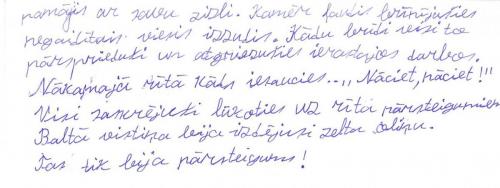 pamājis ar savu zizli. Kamēr taulis brīnījušies
negaidītais viesis izzudis. Kādu brīdi visi to
pārsprieduši un atgriezušies ierastajos darbos.
Nākamajā rītā kāds iesaucies..„ Nāciet, nāciet!!"
Visi saskrējuši lūkoties uz rīta pārsteigumiem
Baltā vistiņa bija izdējusi zelta oliņu.
Tas tik bija pārsteigums!